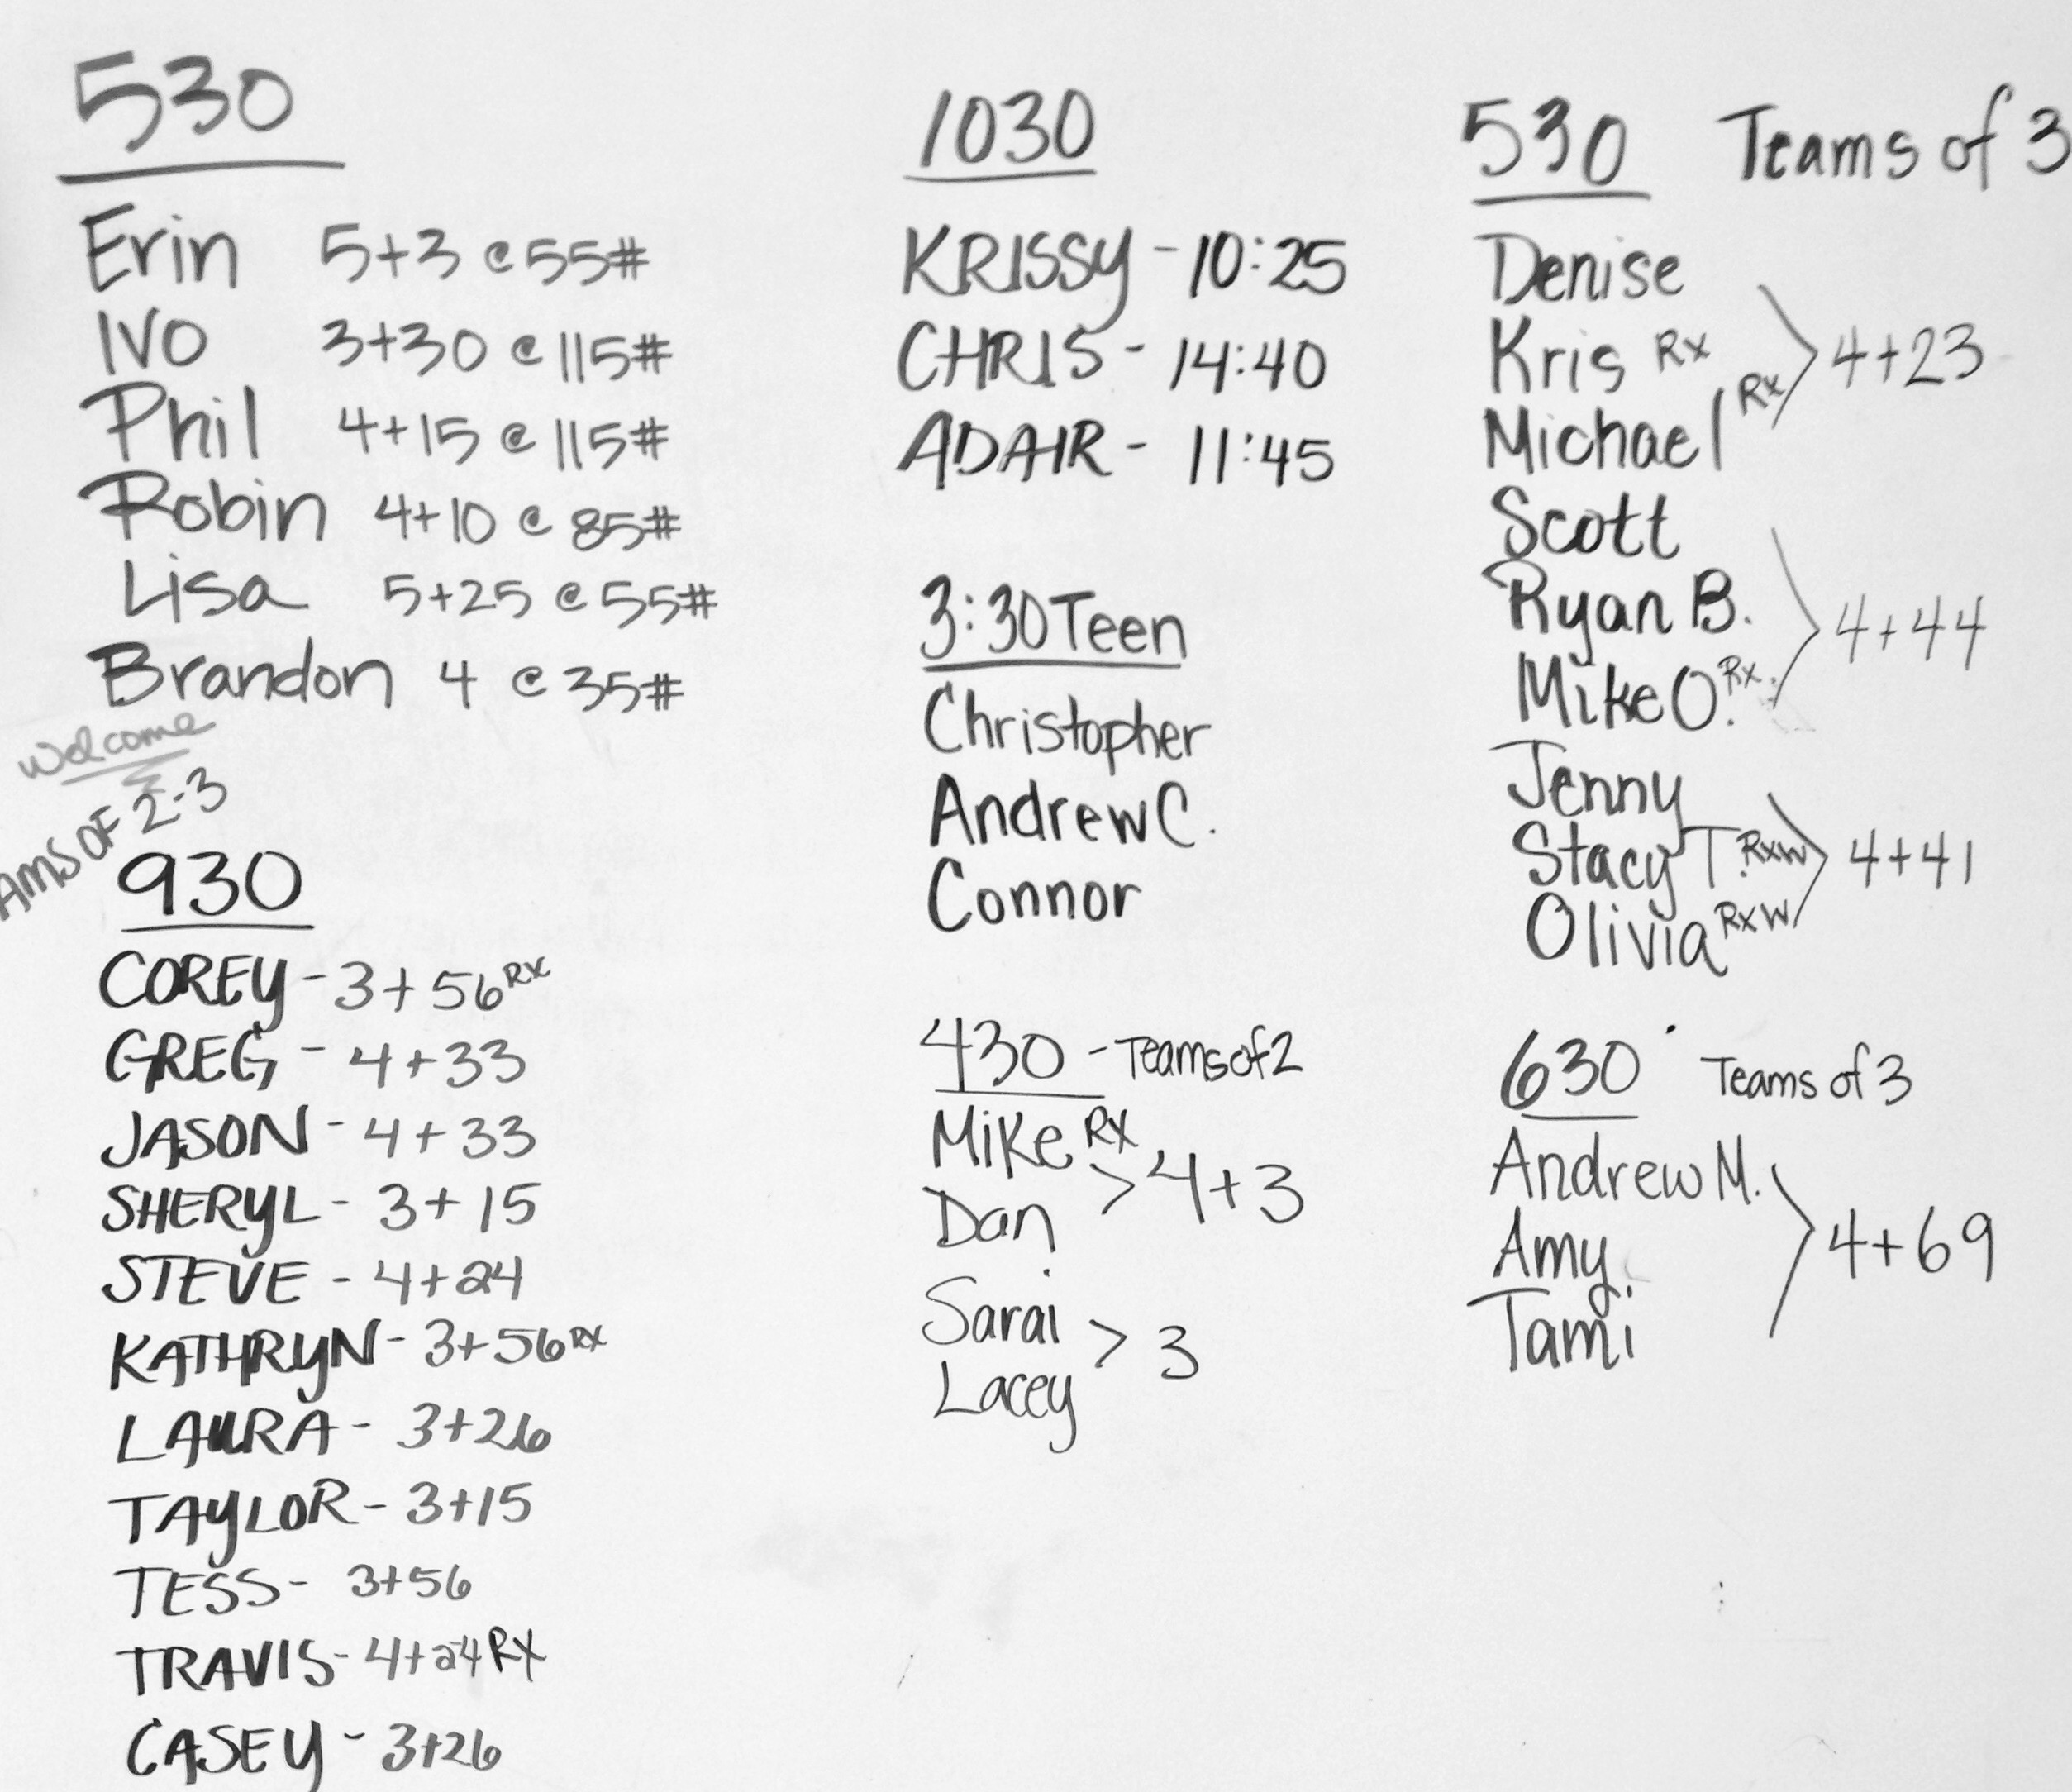 530
Erin 5+3 @ 55#
IVO 3+30 @ 115#
Phil 4+15 @ 115#
Robin 4+10 @ 85#
Lisa 5+25 @ 55#
Brandon 4 @ 35#
welcome
AMS OF 2-3
930
COREY - 3+56 RX
GREG - 4+33
JASON - 4+33
SHERYL - 3+15
STEVE - 4+24
KATHRYN - 3+56 RX
LAURA - 3+26
TAYLOR - 3+15
TESS - 3+56
TRAVIS - 4+24 RX
CASEY - 3+26
1030
KRISSY - 10:25
CHRIS - 14:40
ADAIR - 11:45
3:30 Teen
Christopher
Andrew C.
Connor
430 - Teams of 2
Mike RX
Dan
> 4+3
Sarai
Lacey
> 3
530 Teams of 3
Denise
Kris Rx
Michael Rx
> 4+23
Scott
Ryan B.
Mike O. Rx
> 4+44
Jenny
Stacy T. RxW
Olivia RxW
> 4+41
630 Teams of 3
Andrew M.
Amy
Tami
> 4+69